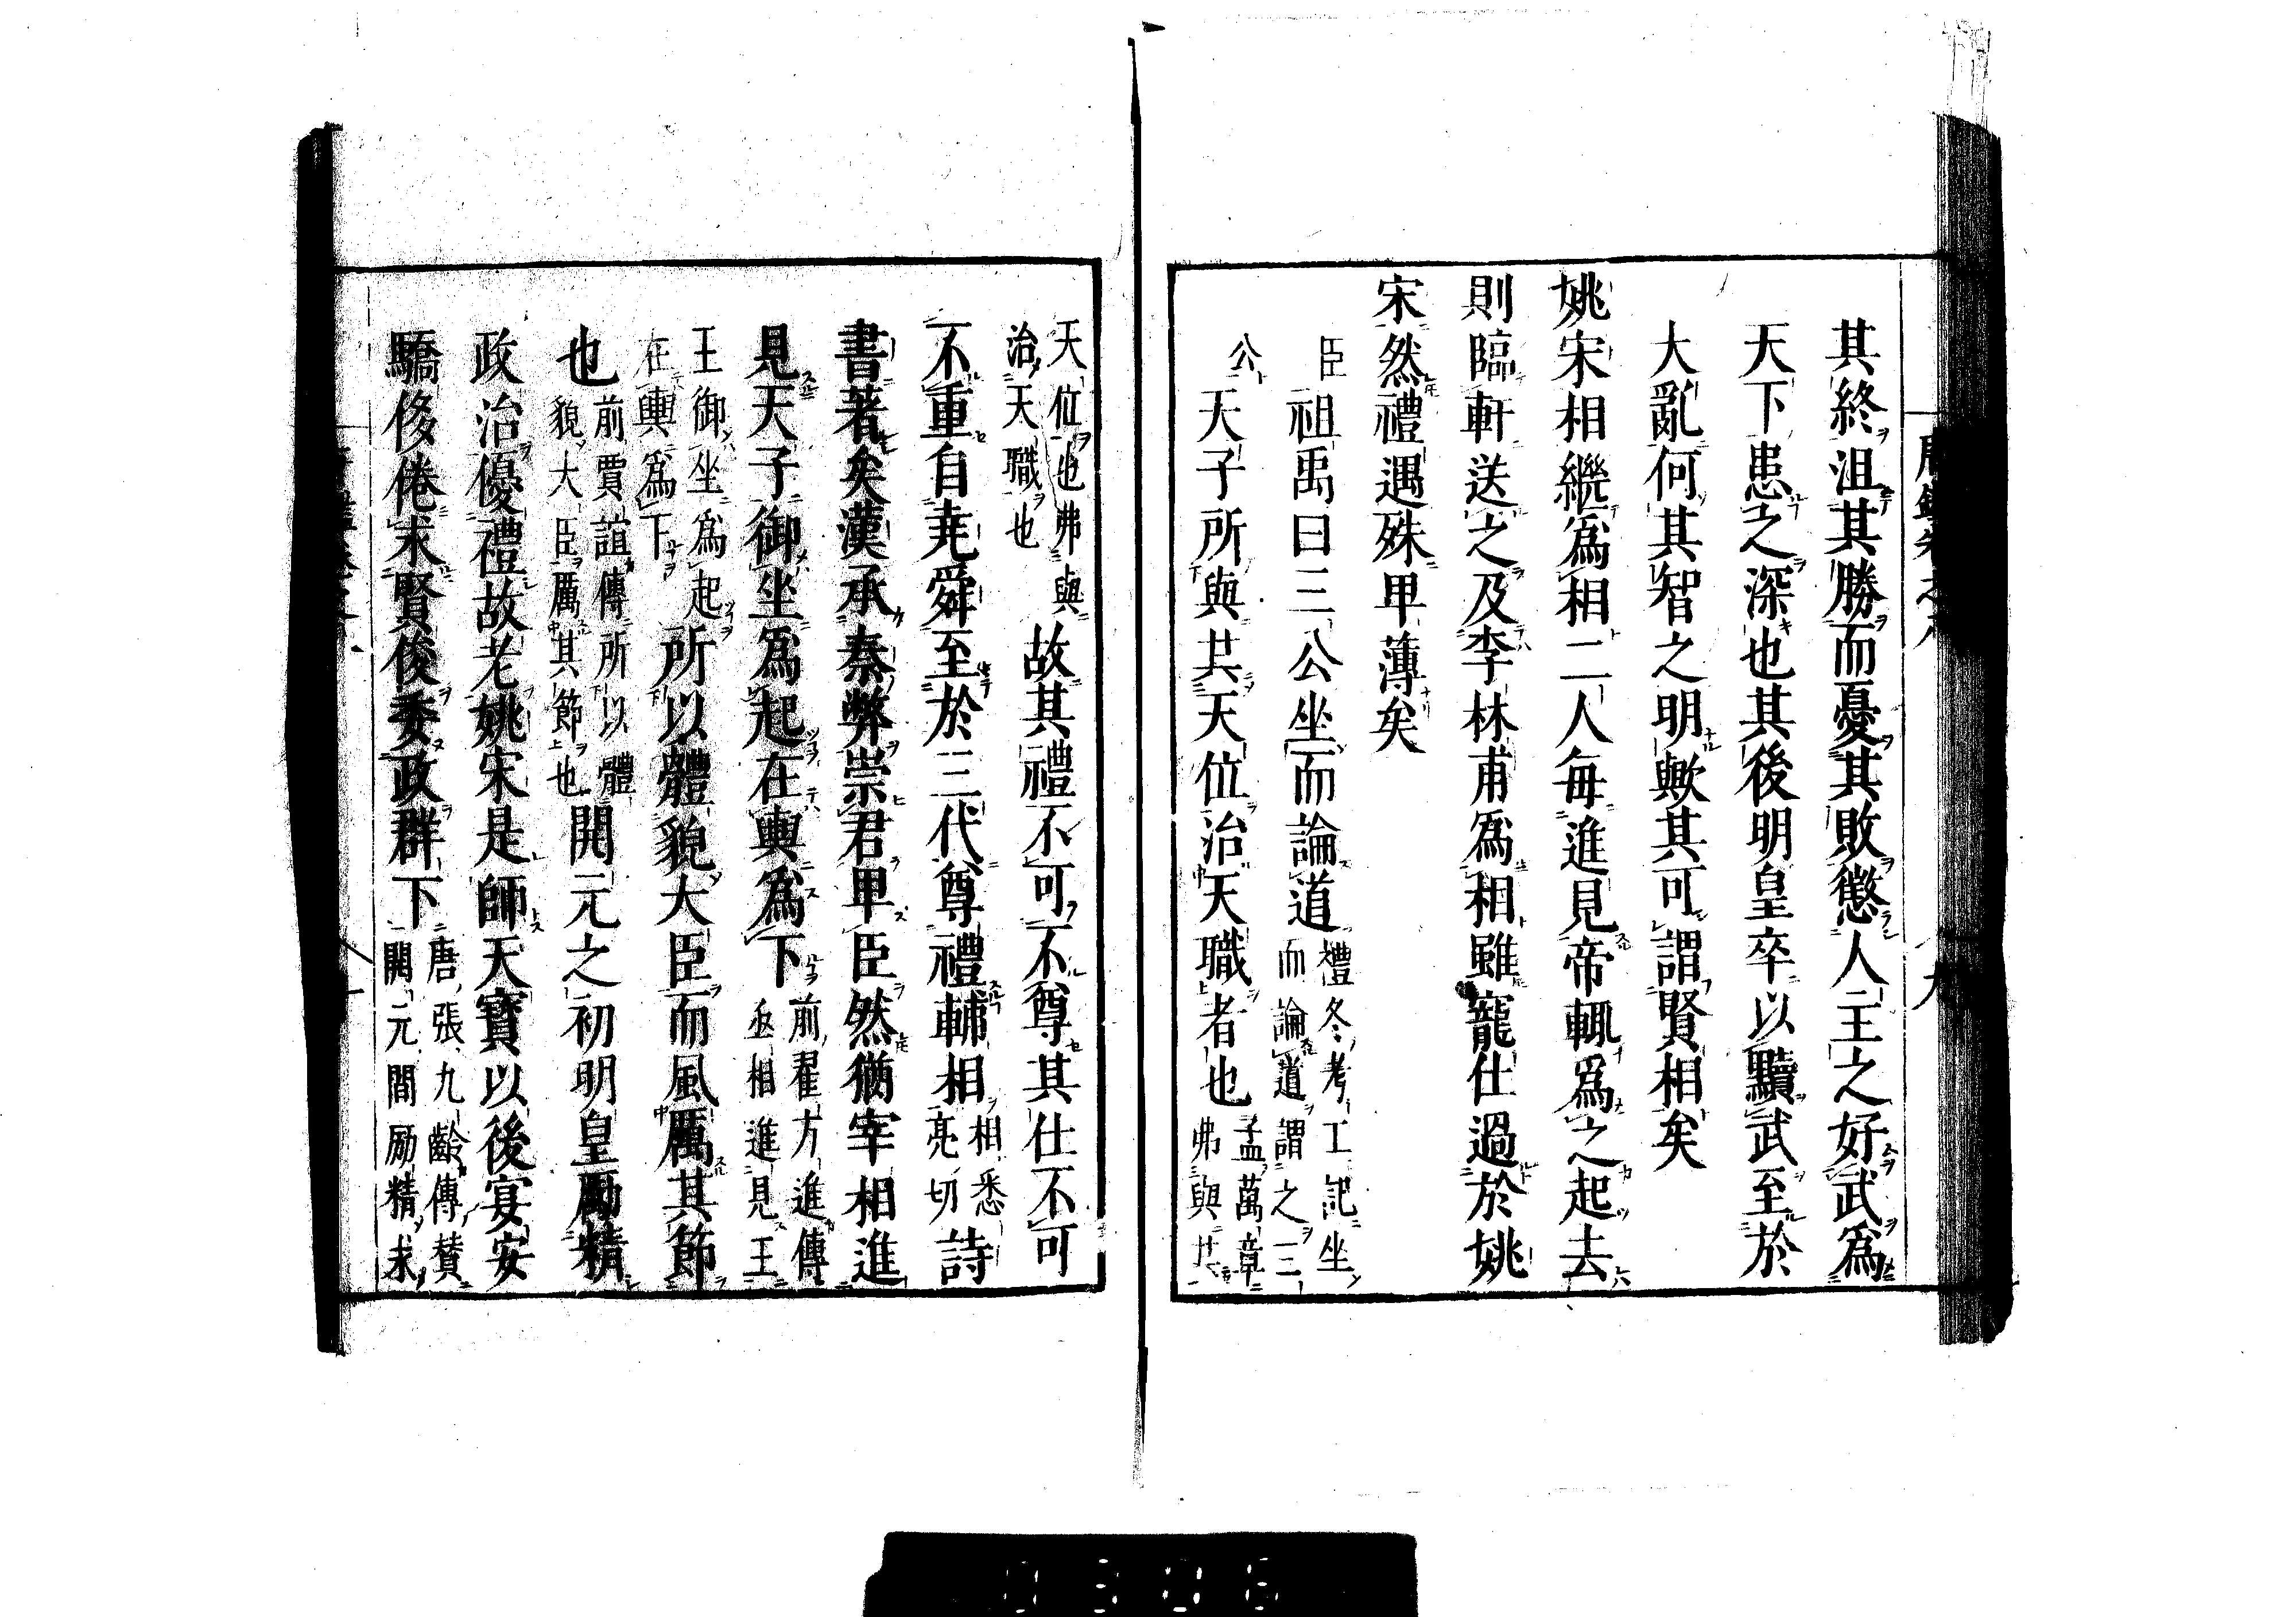 其終沮其勝而憂其敗懲人主之好武爲
天下患之深也其後明皇卒以黷武至於
大亂何其智之明歟其可謂賢相矣
姚宋相繼爲相二人每進見帝輒爲之起去
則臨軒送之及李林甫爲相雖寵任過於姚
宋然禮遇殊卑薄矣
臣祖禹曰三公坐而論道禮冬考工記坐而論道謂之三
公天子所與共天位治天職者也孟萬章弗與共
天位也弗與治天職也故其禮不可不尊其任不可
不重自堯舜至於三代尊禮輔相相悉亮切詩
書著矣漢承秦弊崇君卑臣然猶宰相進
見天子御坐爲起在輿爲下前翟方進傳丞相進見王
王御坐爲起在輿爲下所以體貌大臣而風厲其節
也前賈誼傳所以體貌大臣厲其節也開元之初明皇勵精
政治優禮故老姚宋是師天寶以後宴安
驕侈倦求賢俊委政群下唐張九齡傳贊開元間厲精求